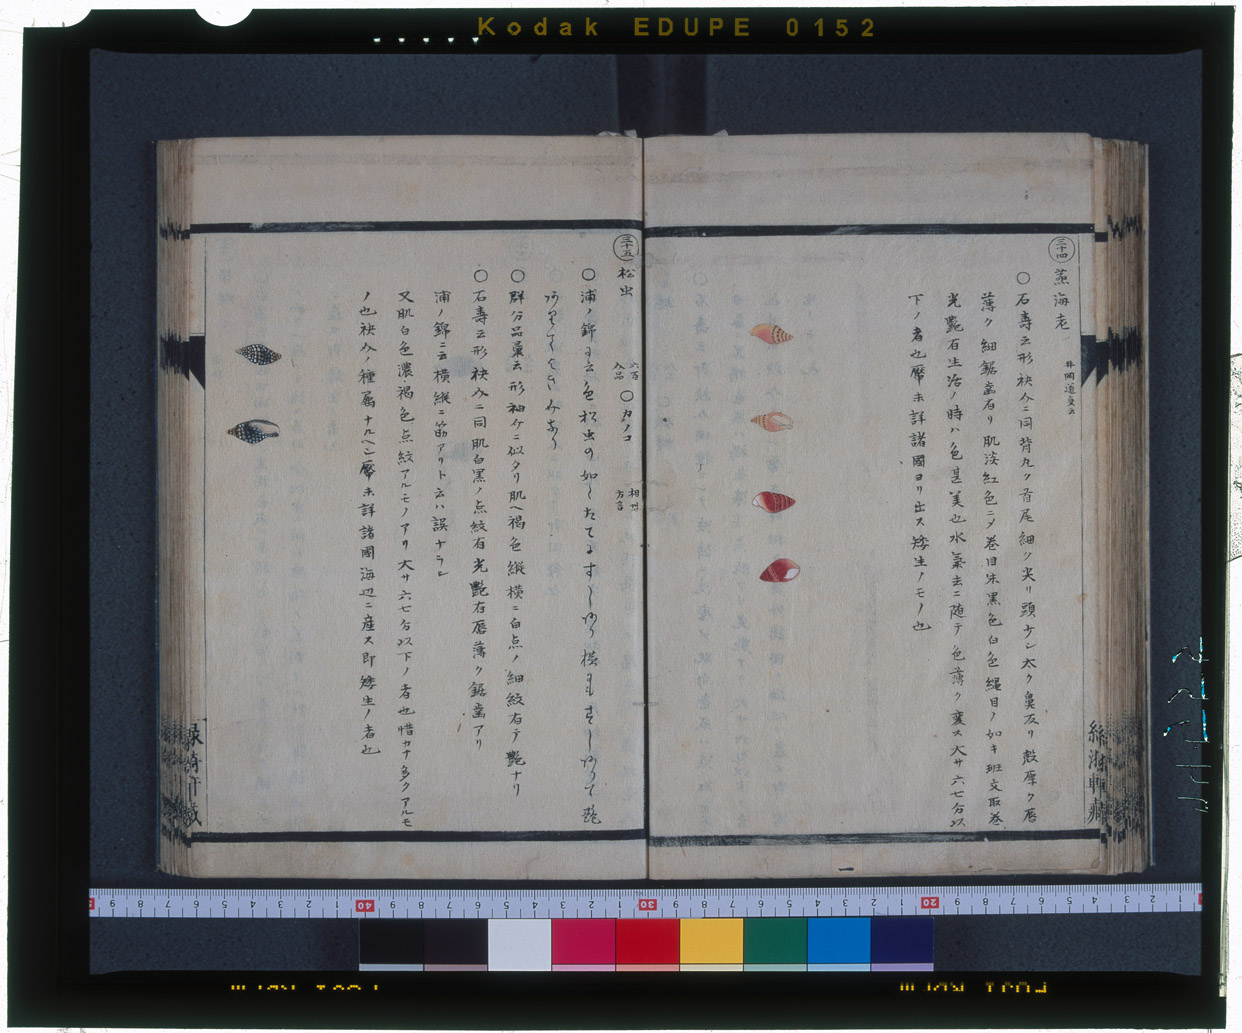 Kodak EDUPE 0152
三十四 蒸海老
○石壽云形袂介ニ同背丸ク首尾細ク尖リ頭少シ太ク鼻反リ殻厚ク唇
薄ク細鋸歯有リ肌淡紅色ニメ巻目朱黒色白色縄目ノ如キ班文取巻
光艶有生活ノ時ハ色甚美也水氣去ニ随テ色薄ク変ス大サ六七分以
下ノ者也嚴未詳諸國ヨリ出ス矮生ノモノ也
三十五 松虫 六百介品 ○カノコ 相州方言
○浦ノ錦に云色松虫の如したてにすしあり横にもすしありて艶
○群分品彙云形袖介ニ似タリ肌ヘ褐色縦横ニ白点ノ細紋有テ艶ナリ
○石壽云形袂介ニ同肌白黒ノ点紋有光艶有唇薄ク鋸歯アリ
浦ノ錦ニ云横縦ニ筋アリト云ハ誤ナラン
又肌白色濃褐色点紋アルモノアリ大サ六七分以下ノ者也惜カナ多クアルモ
ノ也袂介ノ種属ナルヘシ嚴未詳諸國海辺ニ産ス即矮生ノ者也
9 8 7 6 4 3 2 1 40 9 8 7 6 4 3 2 1 30 9 8 7 6 4 3 2 1 20 9 8 7 6 4 3 2 1